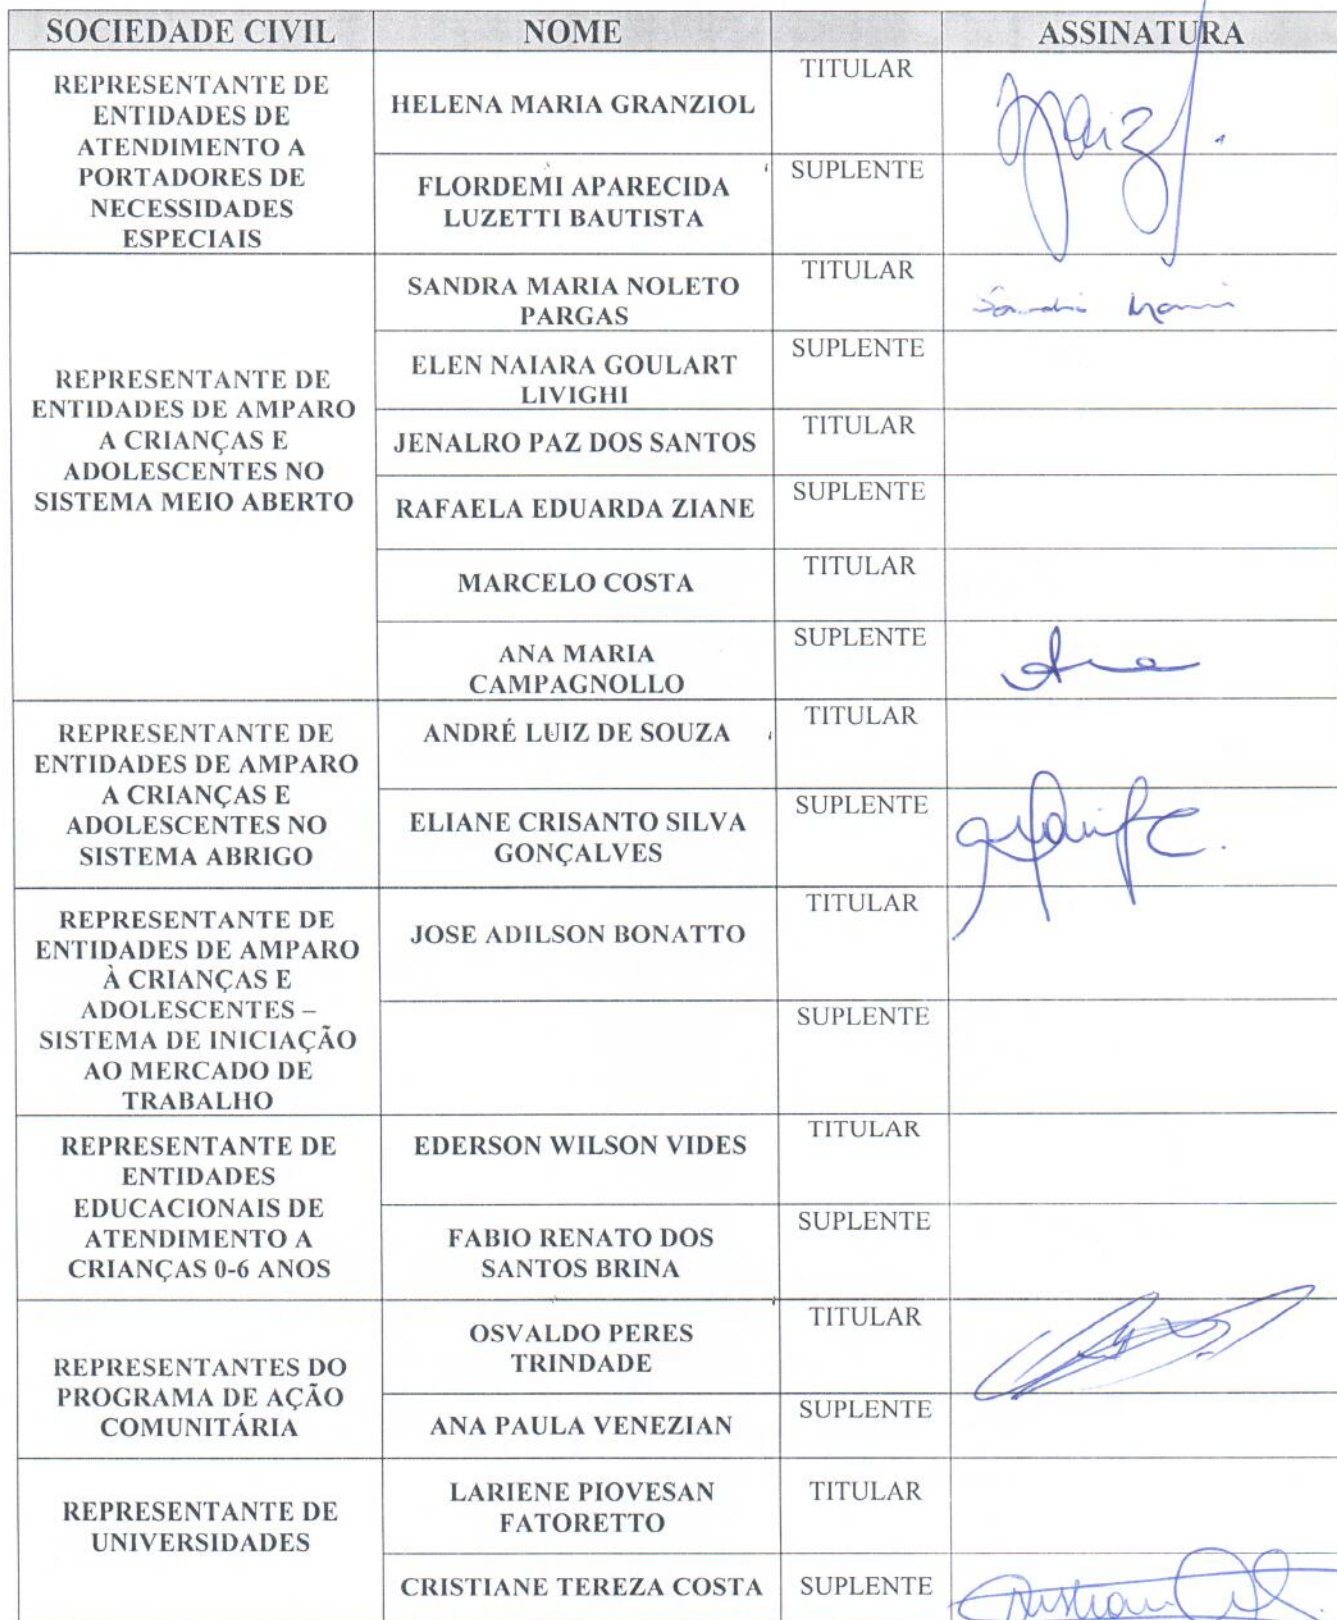 SOCIEDADE CIVIL NOME ASSINATURA
REPRESENTANTE DE
ENTIDADES DE
ATENDIMENTO A
PORTADORES DE
NECESSIDADES
ESPECIAIS
HELENA MARIA GRANZIOL
TITULAR
FLORDEMI APARECIDA
LUZETTI BAUTISTA
SUPLENTE
REPRESENTANTE DE
ENTIDADES DE AMPARO
A CRIANÇAS E
ADOLESCENTES NO
SISTEMA MEIO ABERTO
SANDRA MARIA NOLETO
PARGAS
TITULAR
Sandra Maria
ELEN NAIARA GOULART
LIVIGHI
SUPLENTE
JENALRO PAZ DOS SANTOS
TITULAR
RAFAELA EDUARDA ZIANE
SUPLENTE
MARCELO COSTA
TITULAR
ANA MARIA
CAMPAGNOLLO
SUPLENTE
Ana
REPRESENTANTE DE
ENTIDADES DE AMPARO
A CRIANÇAS E
ADOLESCENTES NO
SISTEMA ABRIGO
ANDRÉ LUIZ DE SOUZA
TITULAR
ELIANE CRISANTO SILVA
GONÇALVES
SUPLENTE
REPRESENTANTE DE
ENTIDADES DE AMPARO
À CRIANÇAS E
ADOLESCENTES –
SISTEMA DE INICIAÇÃO
AO MERCADO DE
TRABALHO
JOSE ADILSON BONATTO
TITULAR
SUPLENTE
REPRESENTANTE DE
ENTIDADES
EDUCACIONAIS DE
ATENDIMENTO A
CRIANÇAS 0-6 ANOS
EDERSON WILSON VIDES
TITULAR
FABIO RENATO DOS
SANTOS BRINA
SUPLENTE
REPRESENTANTES DO
PROGRAMA DE AÇÃO
COMUNITÁRIA
OSVALDO PERES
TRINDADE
TITULAR
ANA PAULA VENEZIAN
SUPLENTE
REPRESENTANTE DE
UNIVERSIDADES
LARIENE PIOVESAN
FATORETTO
TITULAR
CRISTIANE TEREZA COSTA
SUPLENTE